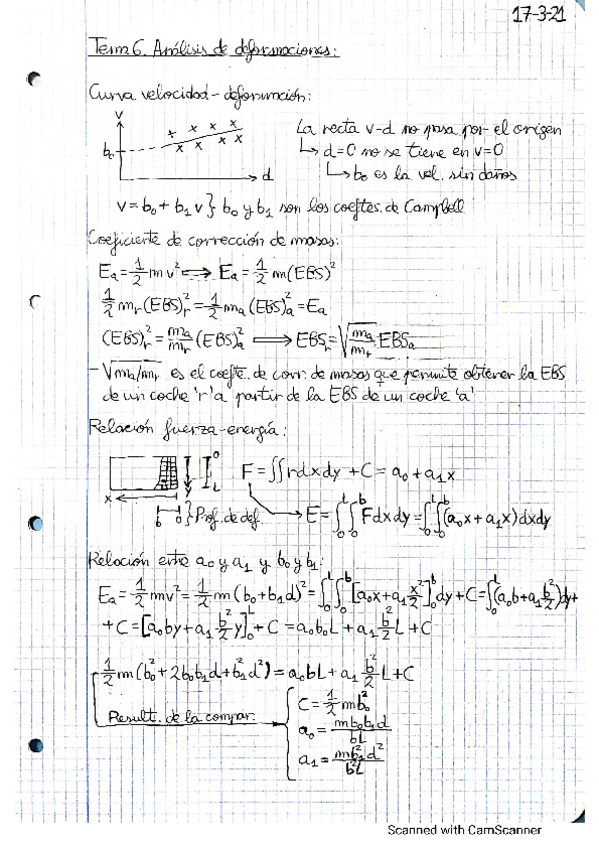 17-3-21
Tema 6. Análisis de deformaciones:
Curva velocidad-deformación:
v
b₀
d
La recta v-d no pasa por el origen
↳ d=0 no se tiene en v=0
↳ b₀ es la vel. sin daños
v = b₀ + b₁v } b₀ y b₁ son los coeftes. de Campbell
Coeficiente de corrección de masas:
Eₐ = 1/2 m v² ⟺ Eₐ = 1/2 m(EBS)²
1/2 mᵣ(EBS)ᵣ² = 1/2 mₐ(EBS)ₐ² = Eₐ
(EBS)ᵣ² = mₐ/mᵣ (EBS)ₐ² ⟹ EBSᵣ = √(mₐ/mᵣ) · EBSₐ
- √mₐ/mᵣ es el coefte. de corr. de masas que permite obtener la EBS
de un coche 'r' a partir de la EBS de un coche 'a'
Relación fuerza-energía:
x
y
0
L
b 0 } Prof. de def.
F = ∫∫ r dx dy + C = a₀ + a₁x
E = ∫₀ᴸ ∫₀ᵇ F dx dy = ∫₀ᴸ ∫₀ᵇ (a₀x + a₁x) dx dy
Relación entre a₀ y a₁ y b₀ y b₁:
Eₐ = 1/2 mv² = 1/2 m (b₀ + b₁d)² = ∫₀ᴸ ∫₀ᵇ [a₀x + a₁ x²/2]₀ᵇ dy + C = ∫₀ᴸ (a₀b + a₁ b²/2) dy +
+ C = [a₀by + a₁ b²/2 y]₀ᴸ + C = a₀b₀L + a₁ b²/2 L + C
1/2 m (b₀² + 2b₀b₁d + b₁²d²) = a₀bL + a₁ b²/2 L + C
Result. de la compar.
C = 1/2 mb₀²
a₀ = mb₀b₁d/bL
a₁ = mb₁²d²/b²L
Scanned with CamScanner